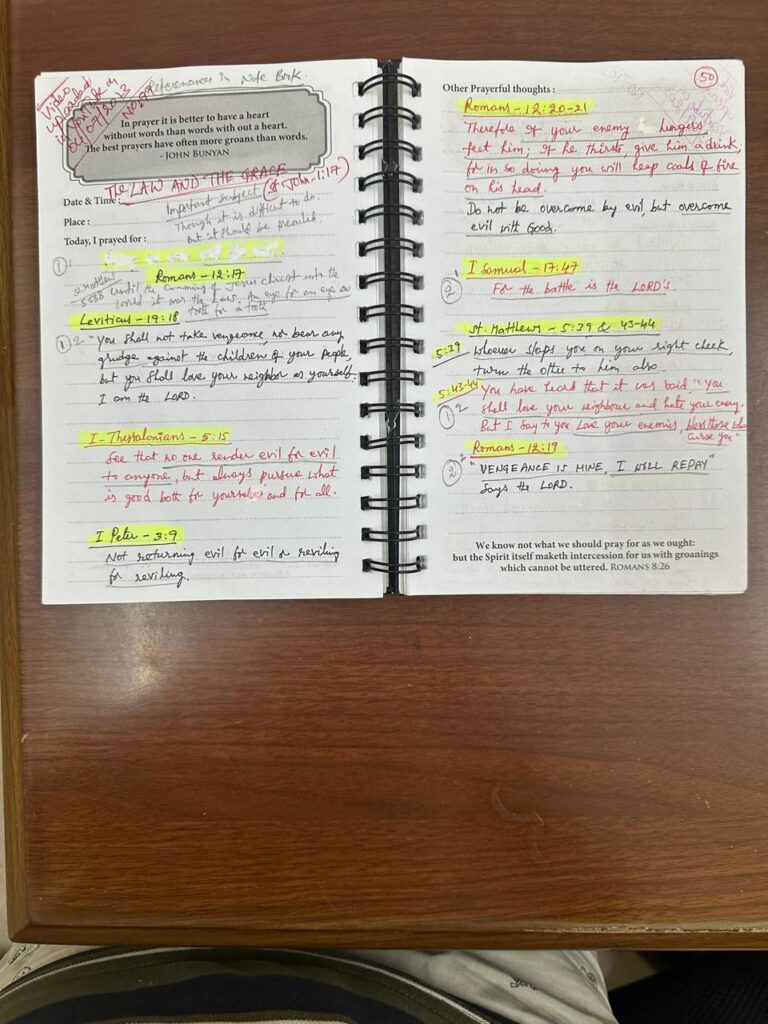 References in Note Book.
Video
uploaded
04/07/2023
In prayer it is better to have a heart
without words than words with out a heart.
The best prayers have often more groans than words.
- JOHN BUNYAN
The LAW AND THE GRACE
(St John-1:17)
Date & Time :
Important subject
Place :
Though it is difficult to do.
Today, I prayed for :
But it should be preached.
1
Romans - 12:17
St Matthew
5:38 Until the coming of Jesus Christ into the
world it was the Law. An eye for an eye &
tooth for a tooth
Leviticus - 19:18
1 2 "You shall not take vengeance, nor bear any
grudge against the children of your people,
but you shall love your neighbor as yourself.
I am the LORD.
I - Thessalonians - 5:15
See that no one render evil for evil
to anyone, but always pursue what
is good both for yourselves and for all.
I Peter - 3:9
Not returning evil for evil or reviling
for reviling.
50
Other Prayerful thoughts :
Romans - 12:20-21
Therefore If your enemy hungers,
feet him; if he thirsts, give him a drink,
for in so doing you will heap coals of fire
on his head.
Do not be overcome by evil, but overcome
evil with Good.
I Samual - 17:47
2 For the battle is the LORD's.
St. Matthews - 5:39 & 43-44
5:39 - Whoever slaps you on your right cheek,
turn the other to him also.
5:43-44 You have heard that it was said, "you
1 2 shall love your neighbour and hate your enemy.
But I say to you Love your enemies, bless those who
curse you"
Romans - 12:19
2 "VENGEANCE IS MINE, I WILL REPAY"
Says the LORD.
We know not what we should pray for as we ought:
but the Spirit itself maketh intercession for us with groanings
which cannot be uttered. ROMANS 8:26